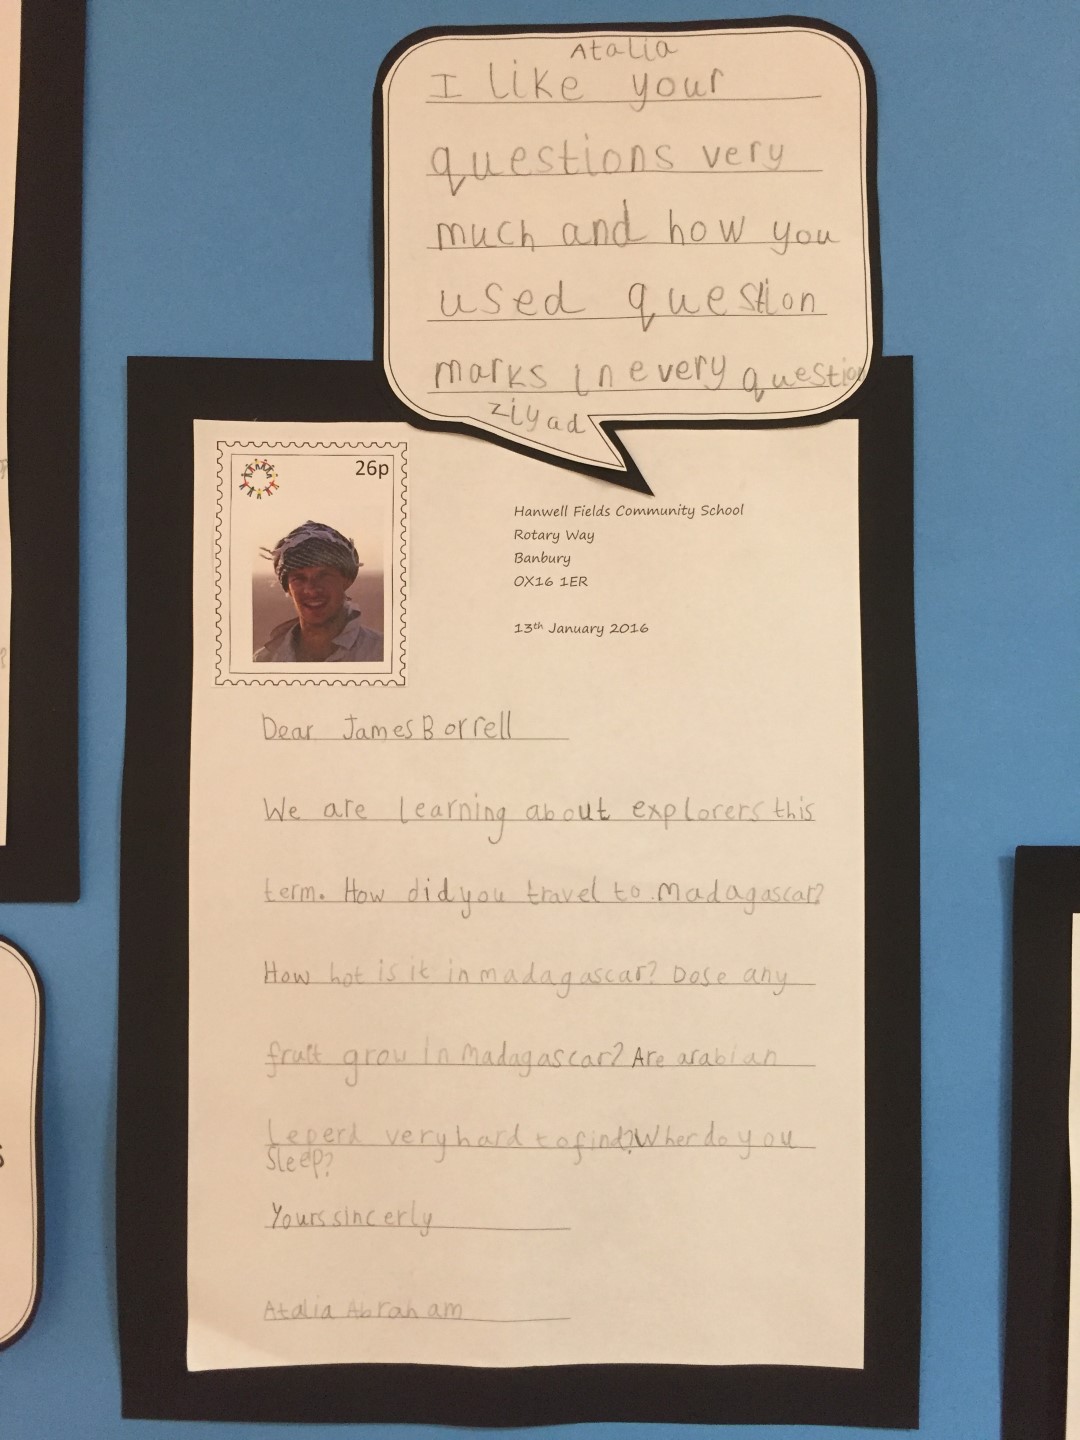 Atalia
I like your
questions very
much and how you
used question
marks in every question
ziyad
26p
Hanwell Fields Community School
Rotary Way
Banbury
OX16 1ER
13th January 2016
Dear James Borrell
We are learning about explorers this
term. How did you travel to Madagascar?
How hot is it in madagascar? Dose any
fruit grou in Madagascar? Are arabian
Leperd very hard to find? Wher do you
Sleep?
Yours sincerly
Atalia Abraham